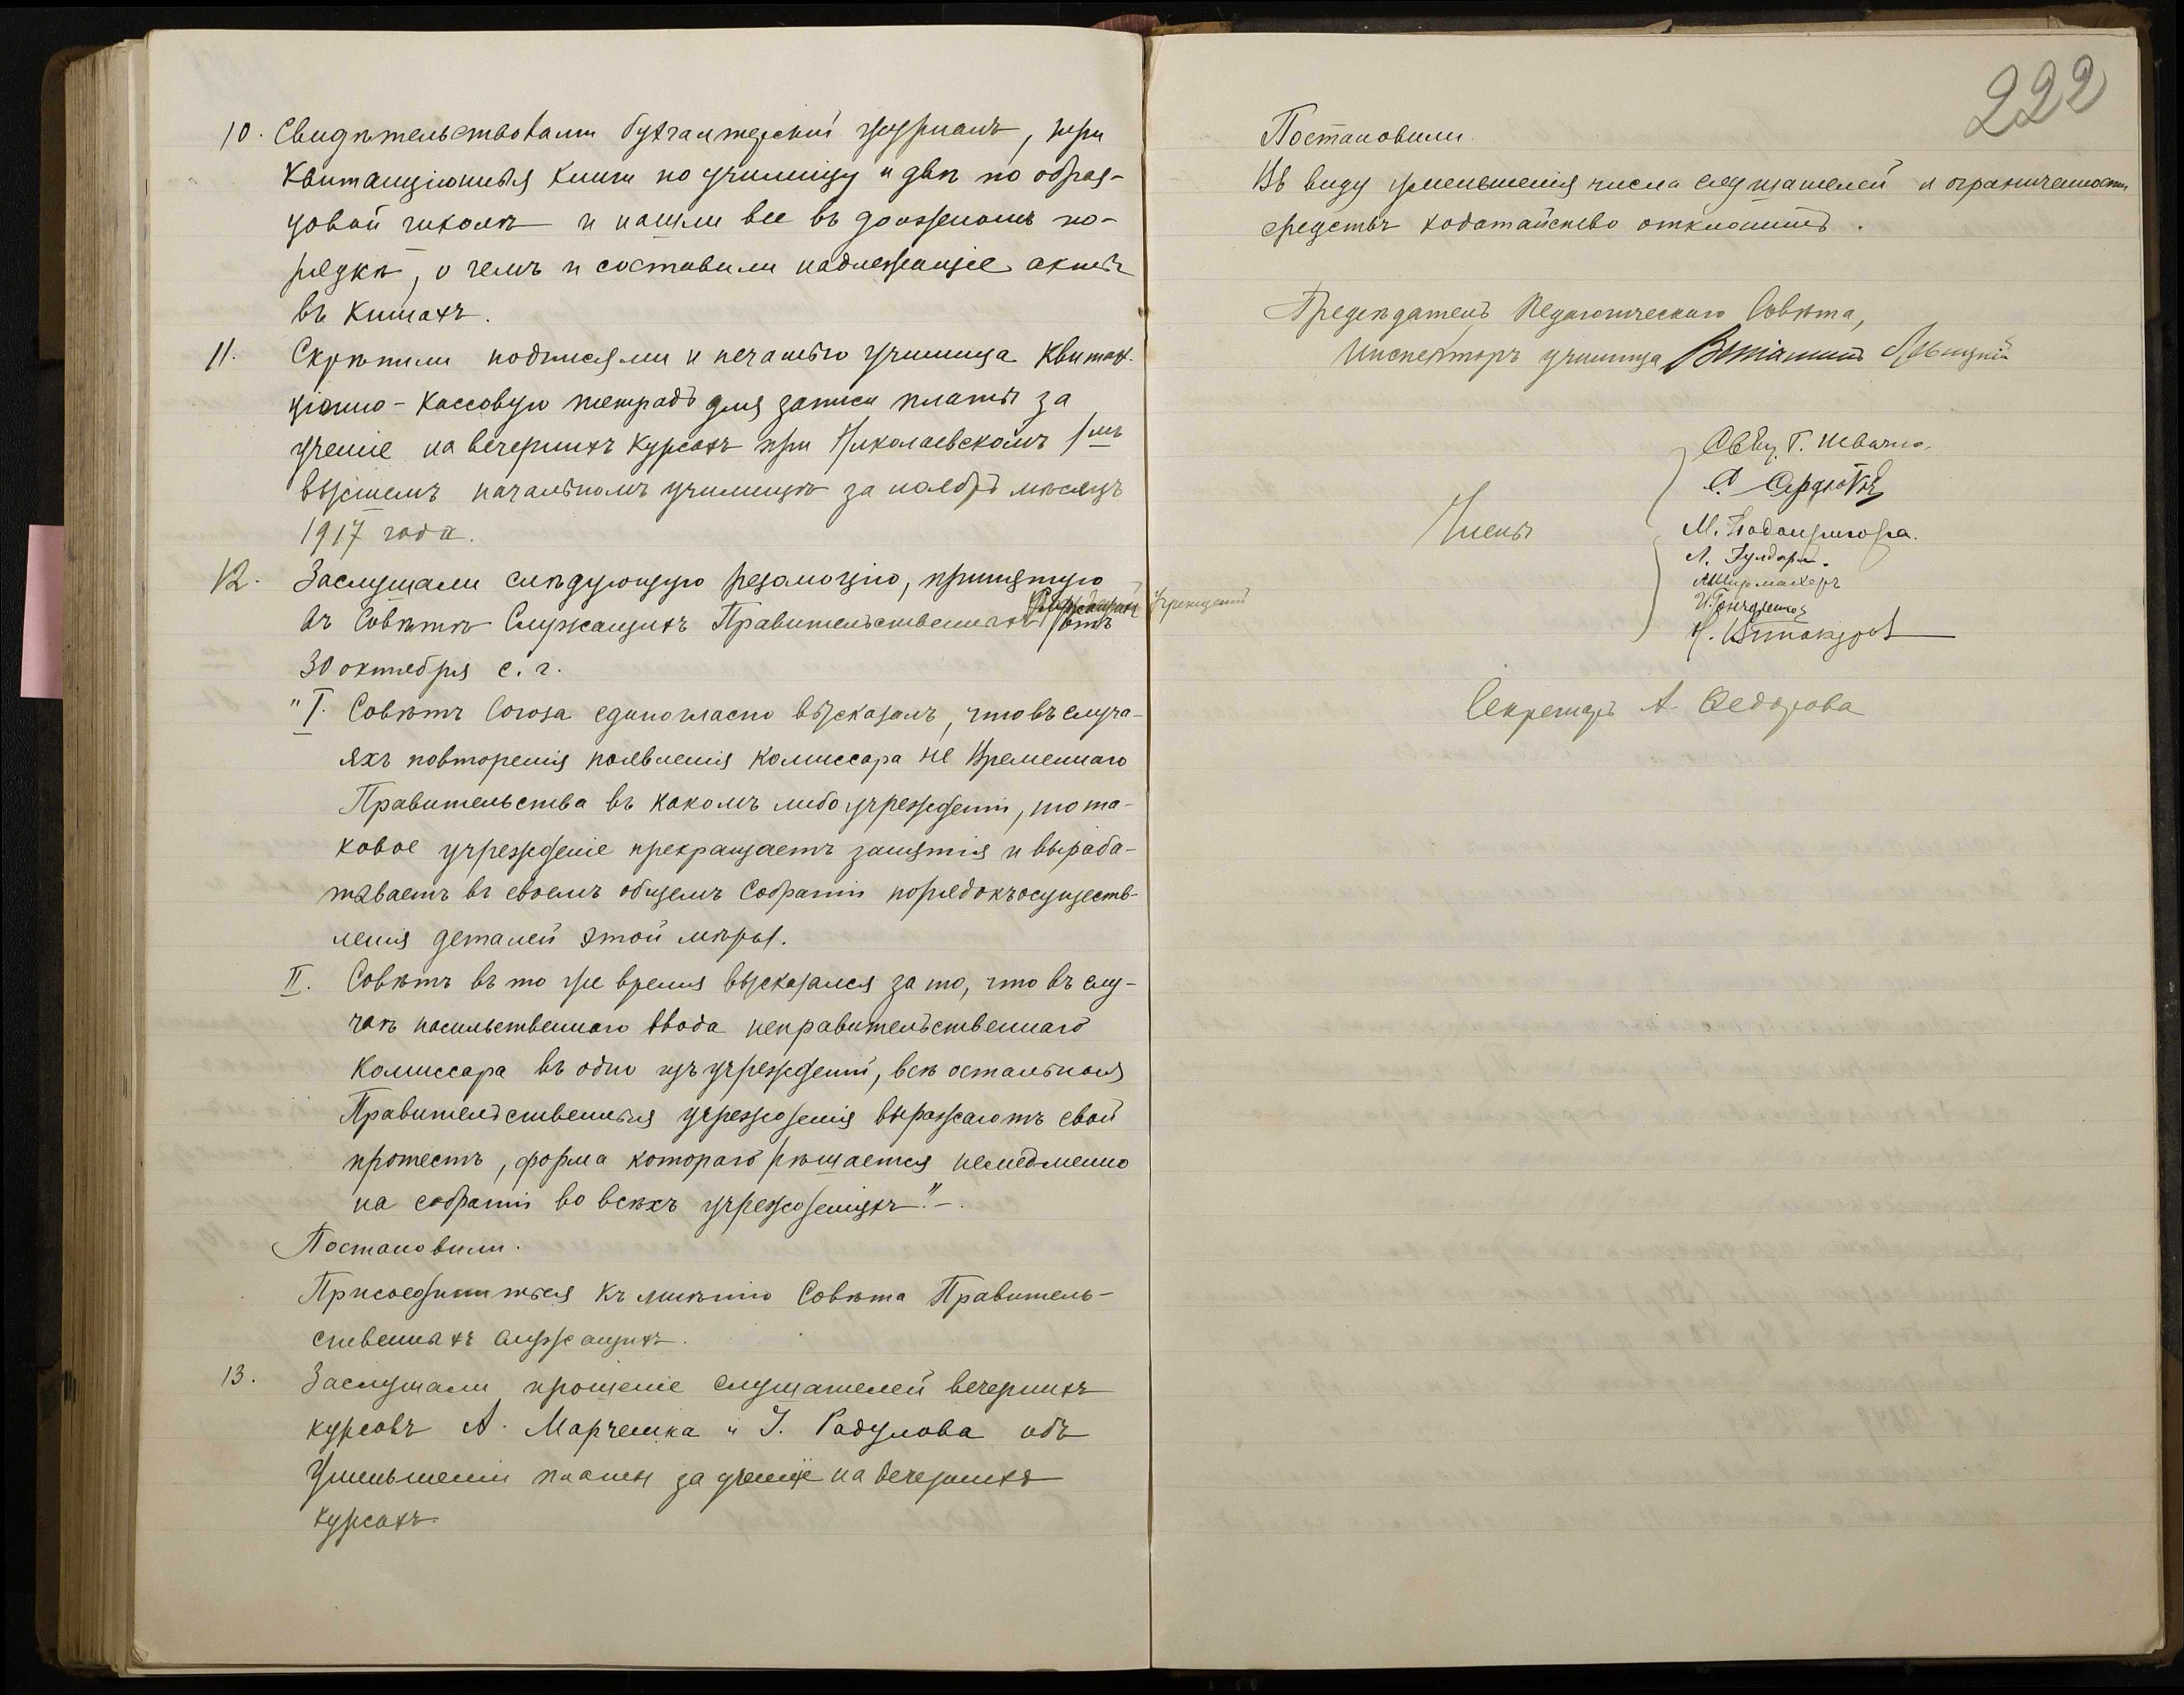 10. Свидѣтельствовали бухгалтерскій журналъ, три
квитанціонныя книги по училищу и двѣ по образ-
цовой школѣ и нашли все въ должномъ по-
рядкѣ, о чемъ и составили надлежащіе акты
въ книгахъ.
11. Скрѣпили подписями и печатью училища квитан-
ціонно-кассовую тетрадь для записи платы за
ученіе на вечернихъ курсахъ при Николаевскомъ 1мъ
высшемъ начальномъ училищѣ за ноябрь мѣсяцъ
1917 года.
12. Заслушали слѣдующую резолюцію, принятую
въ Совѣтѣ Служащихъ Правительственныхъ Учрежденій отъ
30 октября с. г.
"I. Совѣтъ Союза единогласно высказалъ, что въ случа-
яхъ повторенія появленія комиссара не Временнаго
Правительства въ какомъ либо учрежденіи, то та-
ковое учрежденіе прекращаетъ занятія и выраба-
тываетъ въ своемъ общемъ Собраніи порядокъ осуществ-
ленія деталей этой мѣры.
II. Совѣтъ въ то же время высказался за то, что въ слу-
чаѣ насильственнаго ввода неправительственнаго
комиссара въ одно изъ учрежденій, всѣ остальныя
Правительственныя учрежденія выражаютъ свой
протестъ, форма котораго рѣшается немедленно
на собраніи во всѣхъ учрежденіяхъ."-
Постановили.
Присоединиться къ мнѣнію Совѣта Правитель-
ственныхъ служащихъ.
13. Заслушали прошеніе слушателей вечернихъ
курсовъ А. Марченка и І. Радулова объ
уменьшеніи платы за ученіе на вечернихъ
курсахъ
222
Постановили.
Въ виду уменьшенія числа слушателей и ограниченности
средствъ ходатайство отклонить.
Предсѣдатель Педагогическаго Совѣта,
Инспекторъ училища
Члены
Свящ. Г.
С. Сердюковъ
М.
Л.
И. Гончаренко
Секретарь А. Федорова